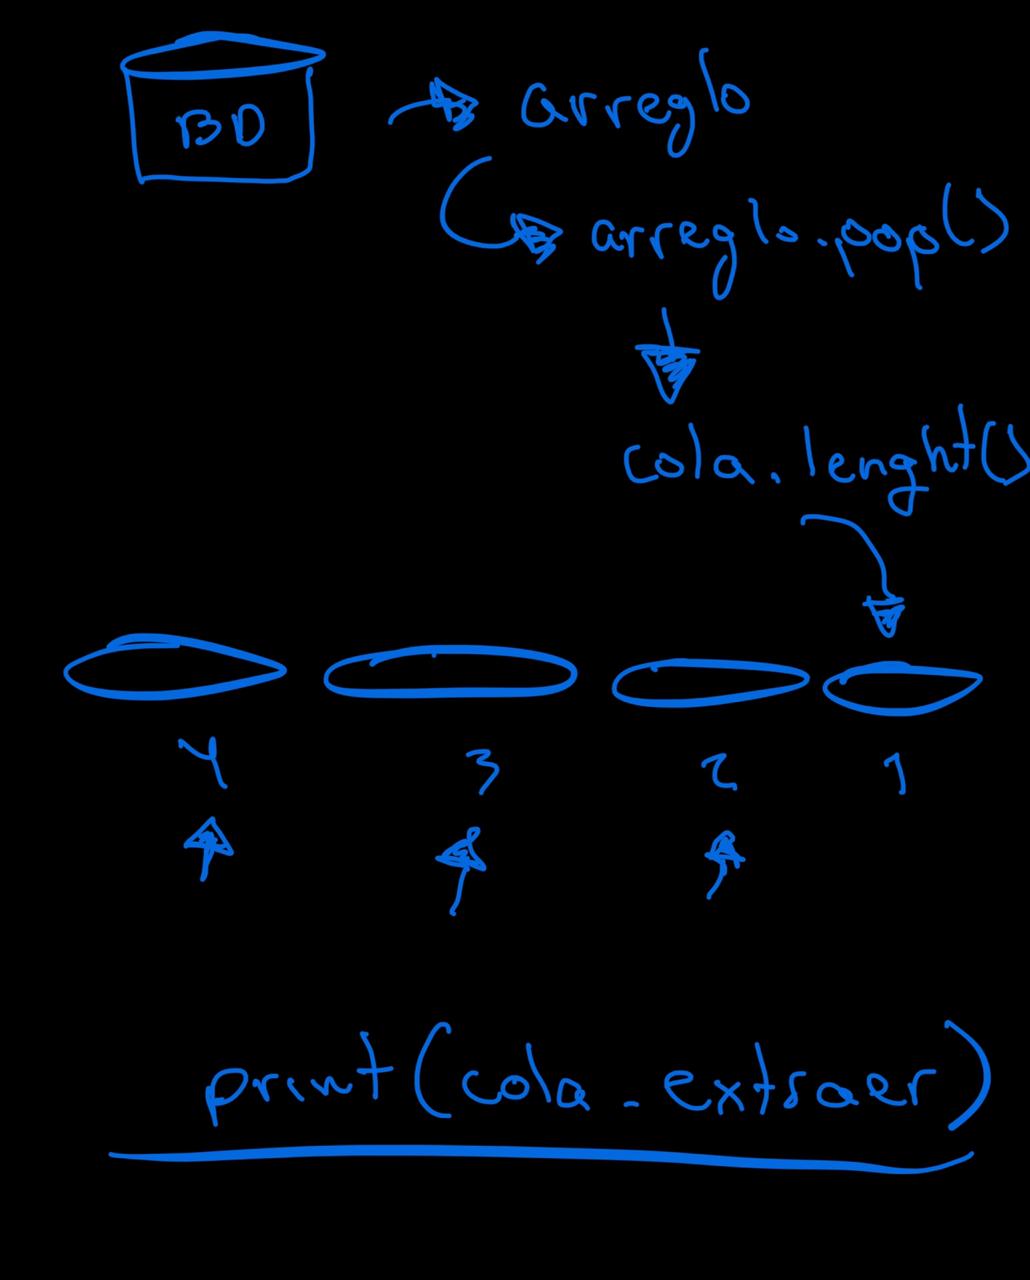 BD
arreglo
arreglo.pop()
cola.lenght()
4 3 2 1
print(cola.extraer)